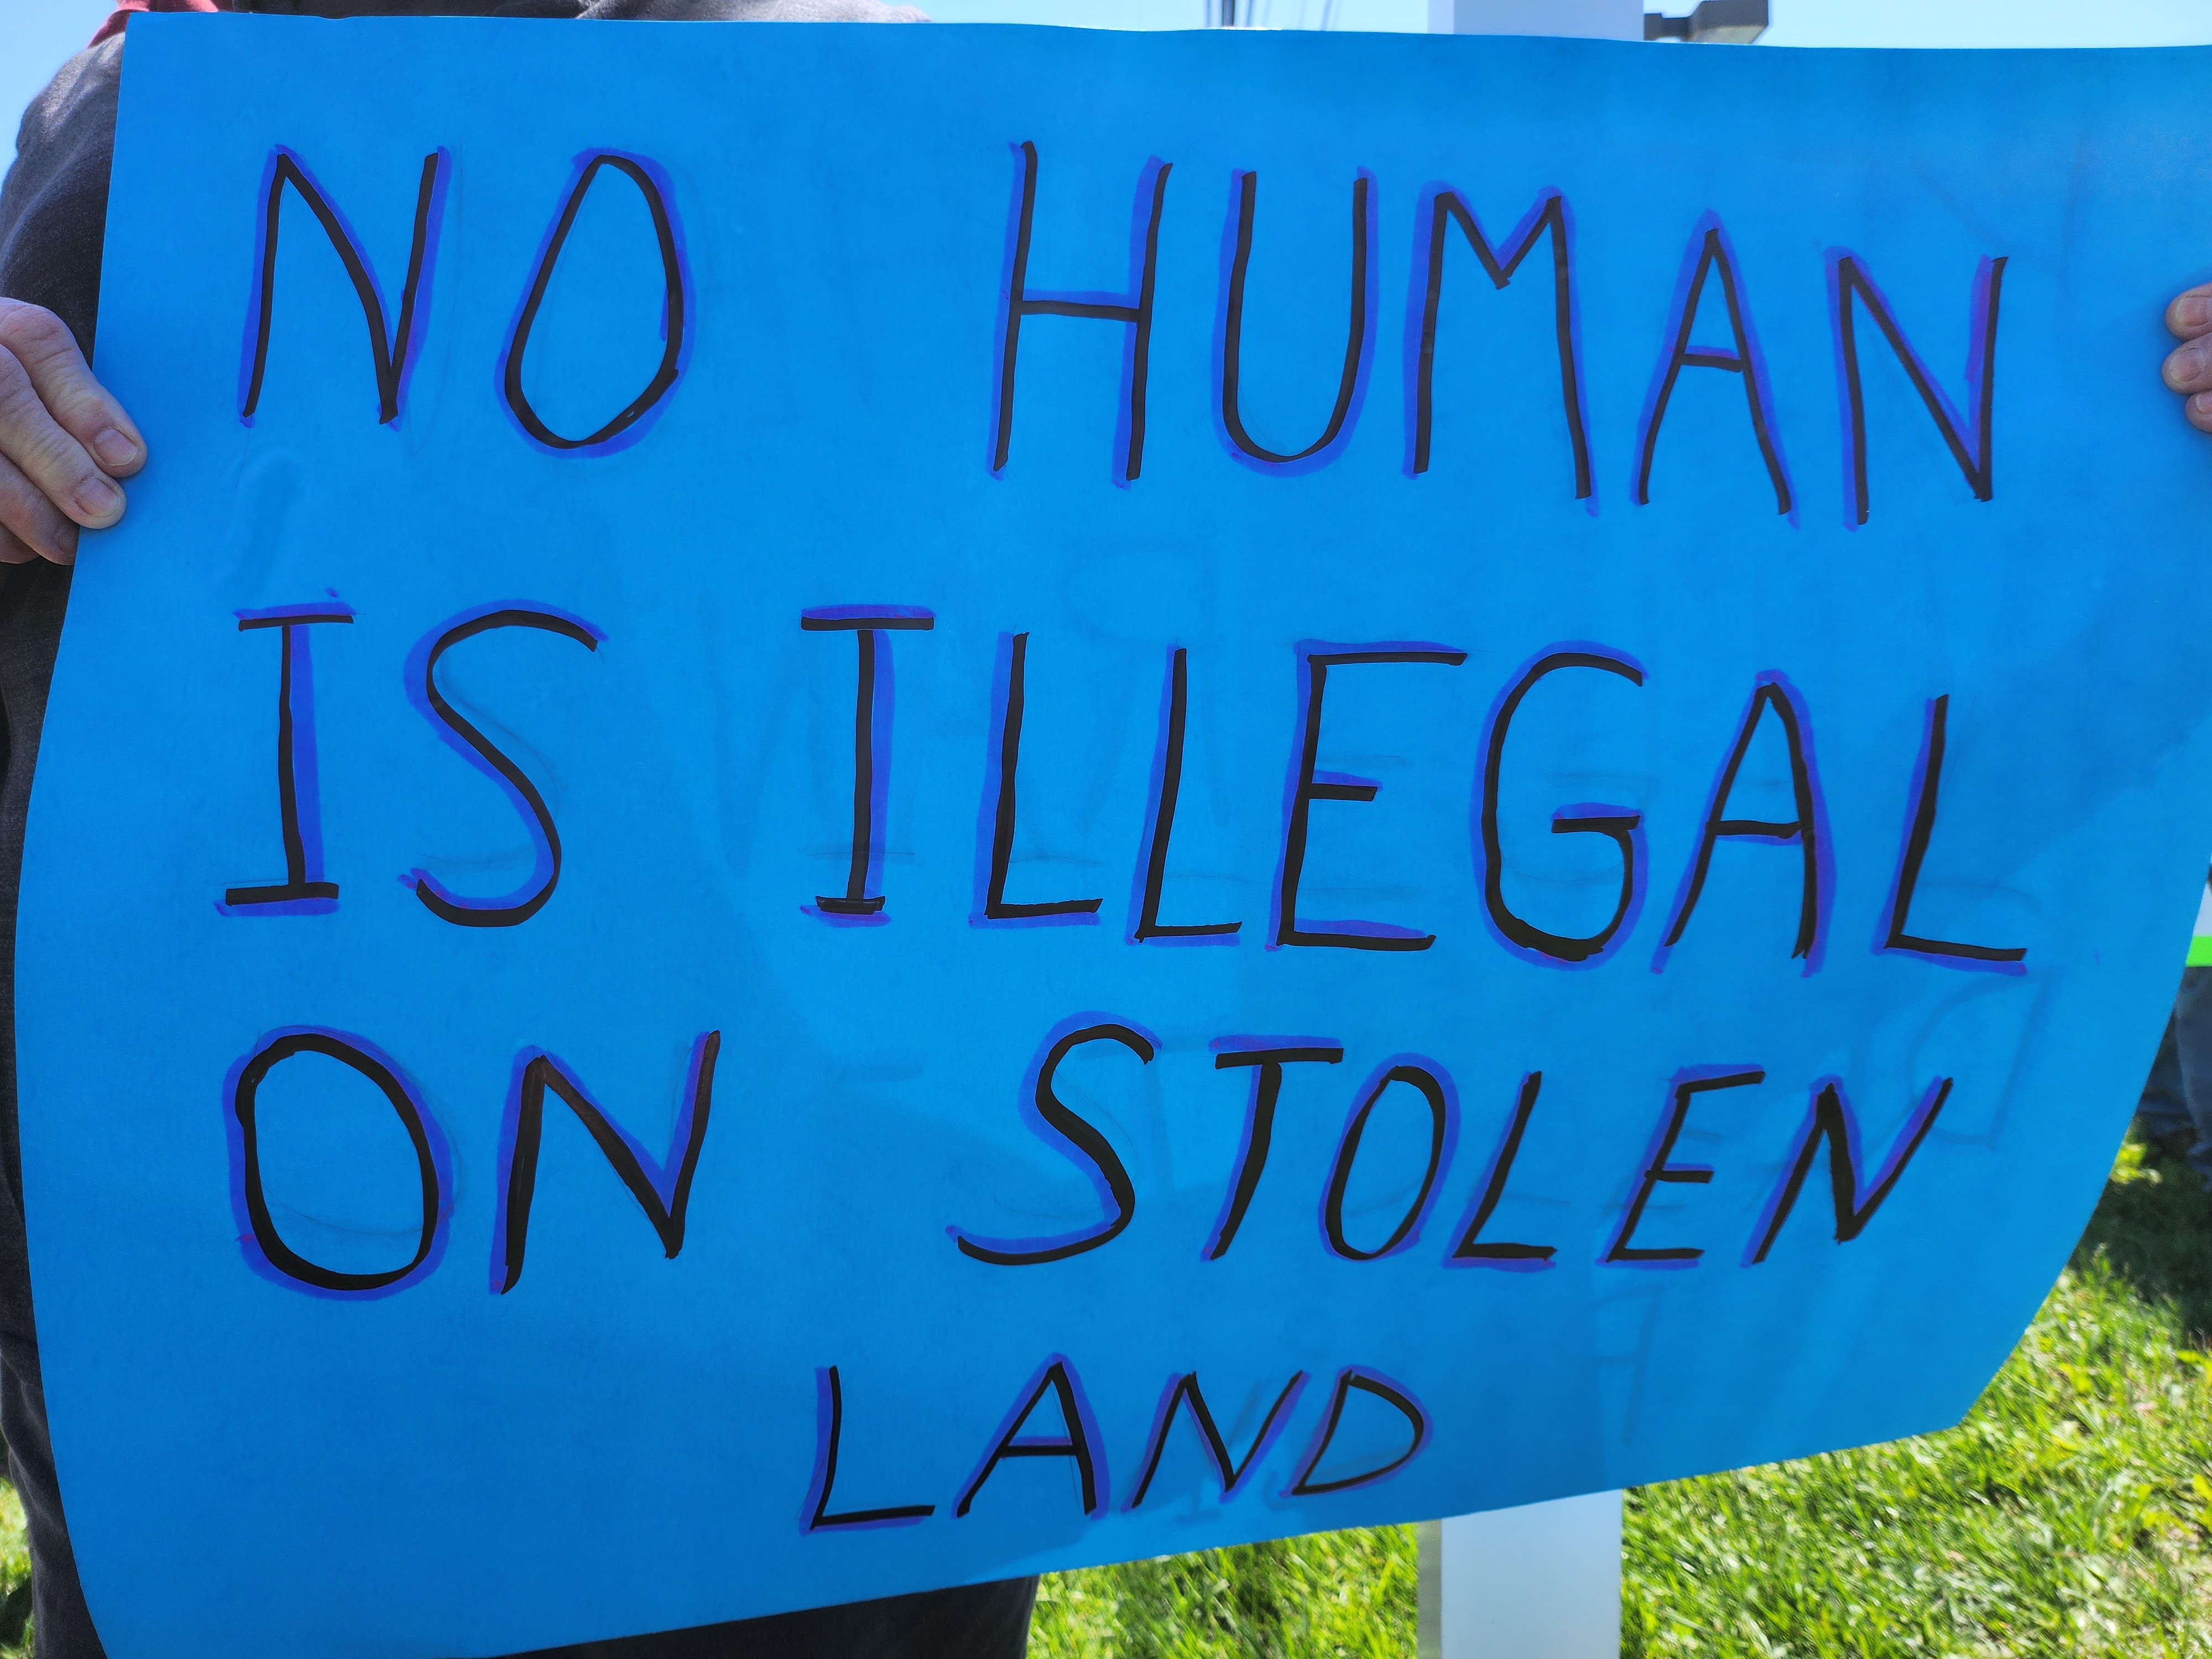 NO HUMAN
IS ILLEGAL
ON STOLEN
LAND